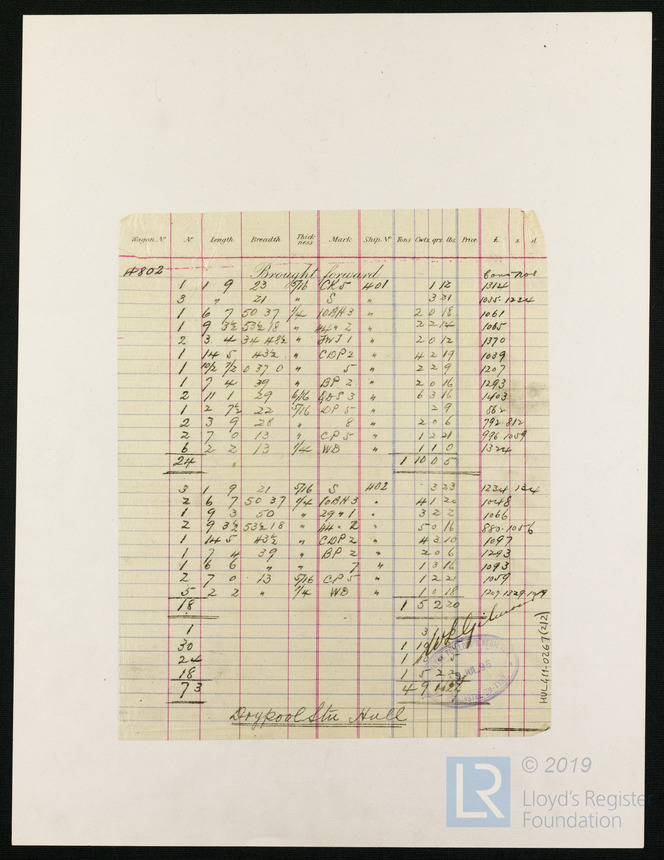 Wagon Nº Nº Length Breadth Thickness Mark Ship. Nº Tons Cwts. qrs. lbs. Price £ s. d.
4802 Brought forward
1 1 9 23 5/16 CK5 401 1 12 1314
3 " 21 " S " 3 21 1035-1224
1 6 7 50 37 1/4 10BH3 " 2 0 18 1061
1 9 3½ 53½ 18 " 2 " 2 2 14 1065
2 3 4 34 4½ " JWJ1 " 2 0 12 1370
1 14 5 43½ " CDP2 " 4 2 19 1039
1 10½ 7/2 0 37 0 " 5 " 2 2 9 1207
1 7 4 39 " BP2 " 2 0 16 1293
2 11 1 29 6/16 3 " 6 3 16 1403
1 2 7½ 22 5/16 DP5 " 2 9 562
2 3 9 28 " 8 " 2 0 6 792-812
2 7 0 13 " CP5 " 1 2 21 996-1059
6 2 2 13 1/4 WB " 1 1 0 1324
24 1 10 0 5
3 1 9 21 5/16 S 402 3 23 1234
2 6 7 50 37 1/4 10BH3 " 4 1 20 1048
1 9 3 50 " 29"1 " 3 2 2 1066
2 9 3½ 53½ 18 " 2 " 5 0 16 883-1056
1 14 5 43½ " CDP2 " 4 3 10 1097
1 7 4 39 " BP2 " 2 0 6 1293
1 6 6 " " 7 " 1 3 16 1093
2 7 0 13 5/16 CP5 " 1 2 21 1059
5 2 2 " 1/4 WB " 1 0 18 1207-1329
18 1 5 2 20
1 3
30 1
24 1
18 1 5 2
73 4 9
Drypool Stn Hull
HUL 411-0267(2/2)
LR
© 2019
Lloyd's Register
Foundation